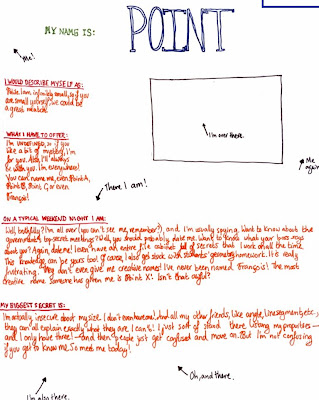 MY NAME IS: POINT
me!
I WOULD DESCRIBE MYSELF AS:
I am infinitely small, so if you
are small yourself we could be
a great match!
I'm over there.
WHAT I HAVE TO OFFER:
I'm undefined, so if you
like a bit of mystery, I'm
for you. Also, I'll always
be with you. I'm everywhere!
You can name me, even, Point A,
Point B, Point C, or even
François!
Me
again
There I am!
ON A TYPICAL WEEKEND NIGHT I AM:
Well, truthfully? I'm all over (you can't see me, remember?), and I'm usually spying. Want to know about the
government's top secret meetings? Well, you should probably date me. Want to know what your boss says
about you? Again, date me! I even have an entire file cabinet full of secrets that I work all the time.
This knowledge can be yours too! Of course, I also get stuck with students' geometry homework. It's really
frustrating. They don't even give me creative names! I've never been named François! The most
creative name someone has given me is Point X! Isn't that awful?
MY BIGGEST SECRET IS:
I'm actually insecure about my size. I don't even have one! And all my other friends, like angle, line segment, etc.,
they can all explain exactly what they are. I can't! I just sort of stand there listing my properties—
and I only have three!—and then people just get confused and move on. But I'm not confusing
if you get to know me. So meet me today!
Oh, and there.
I'm also there.